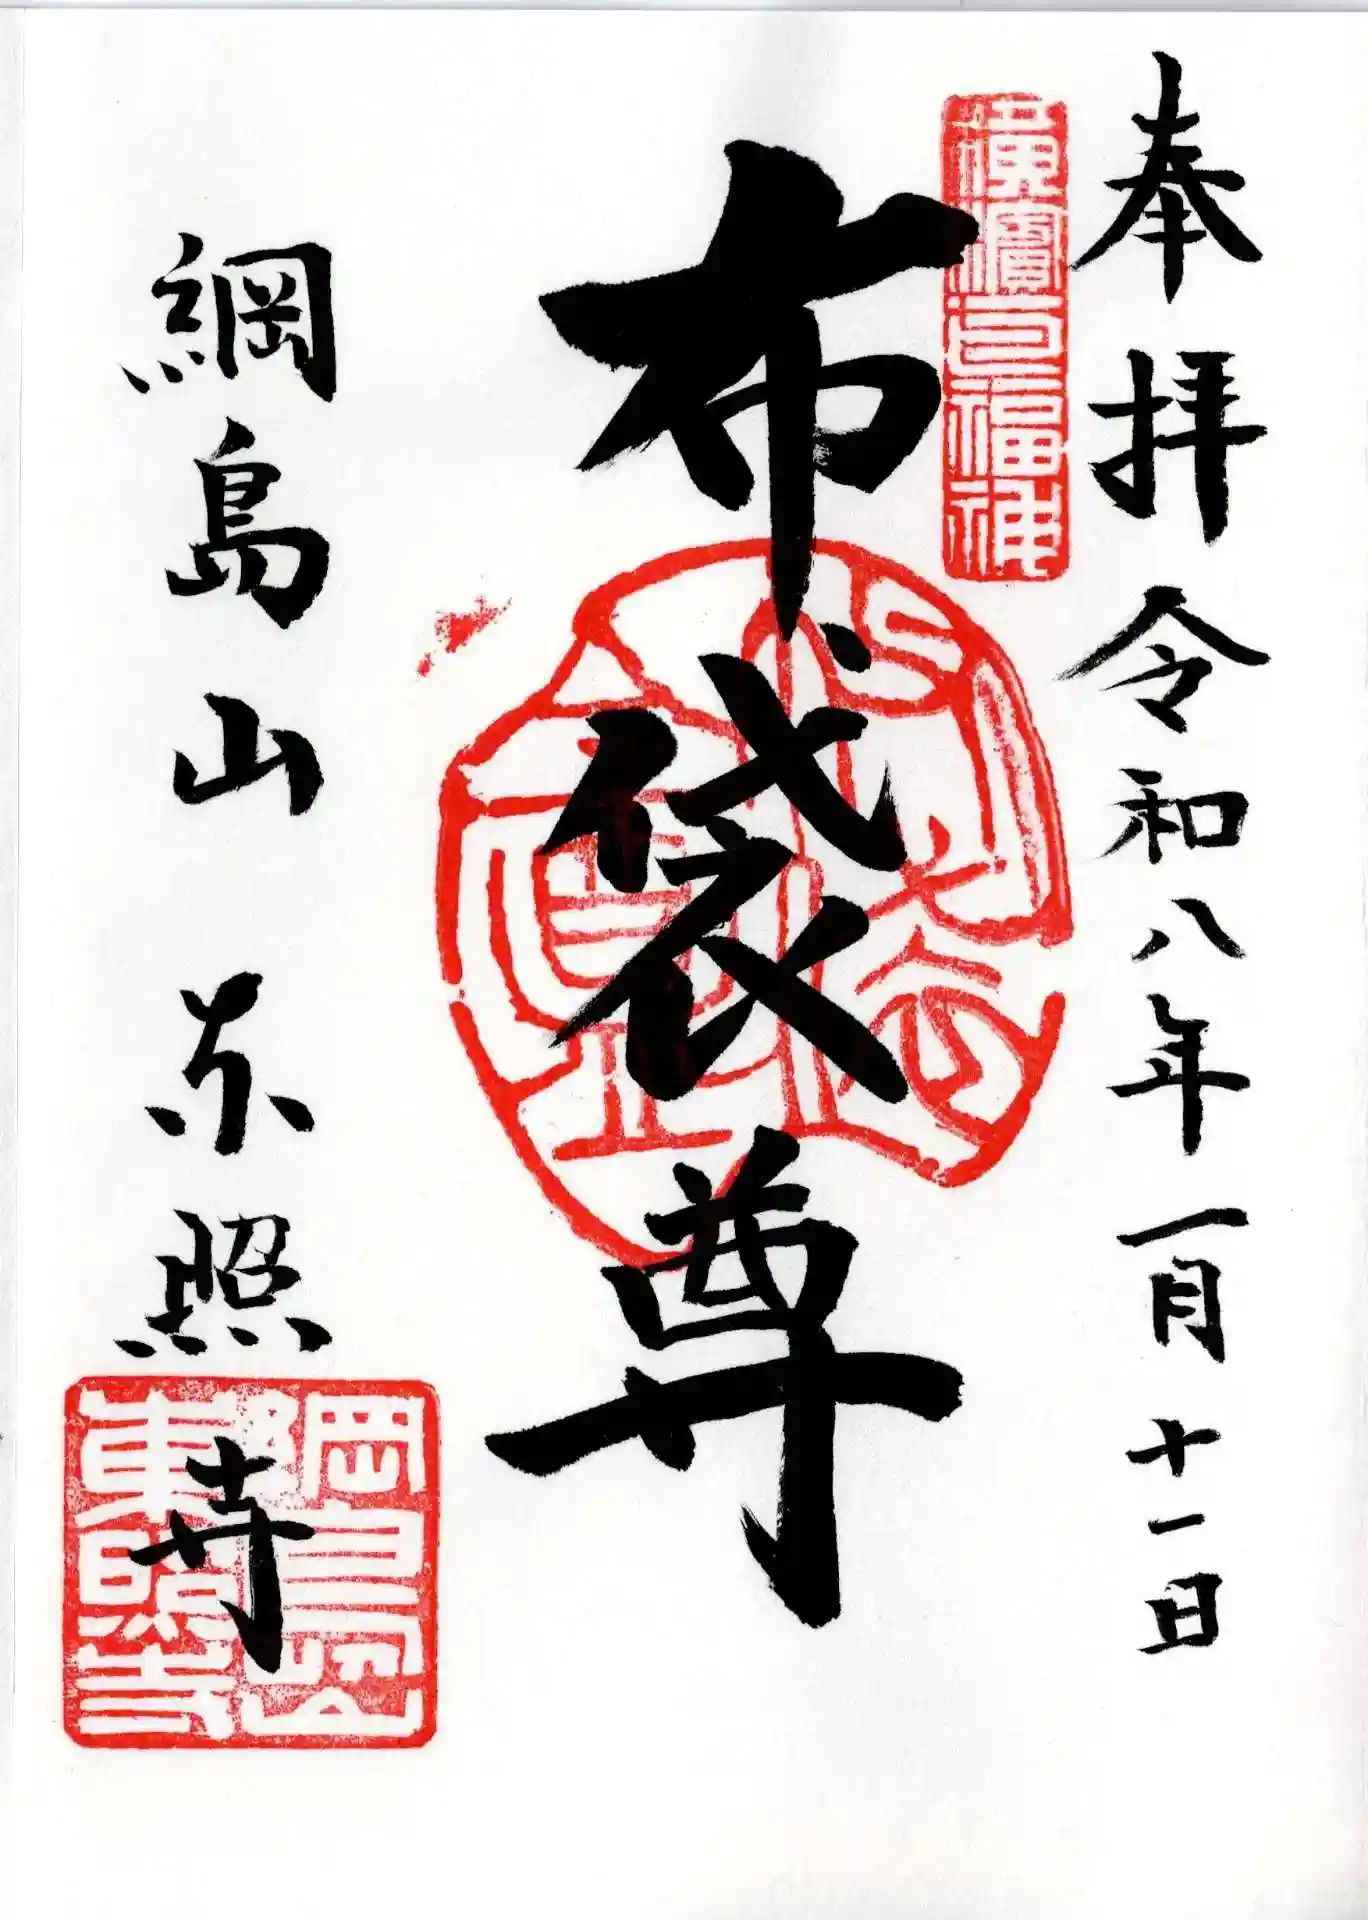 奉拝 令和八年一月十一日
横濱七福神
布袋尊
綱島山 东照寺
綱島山
東照寺